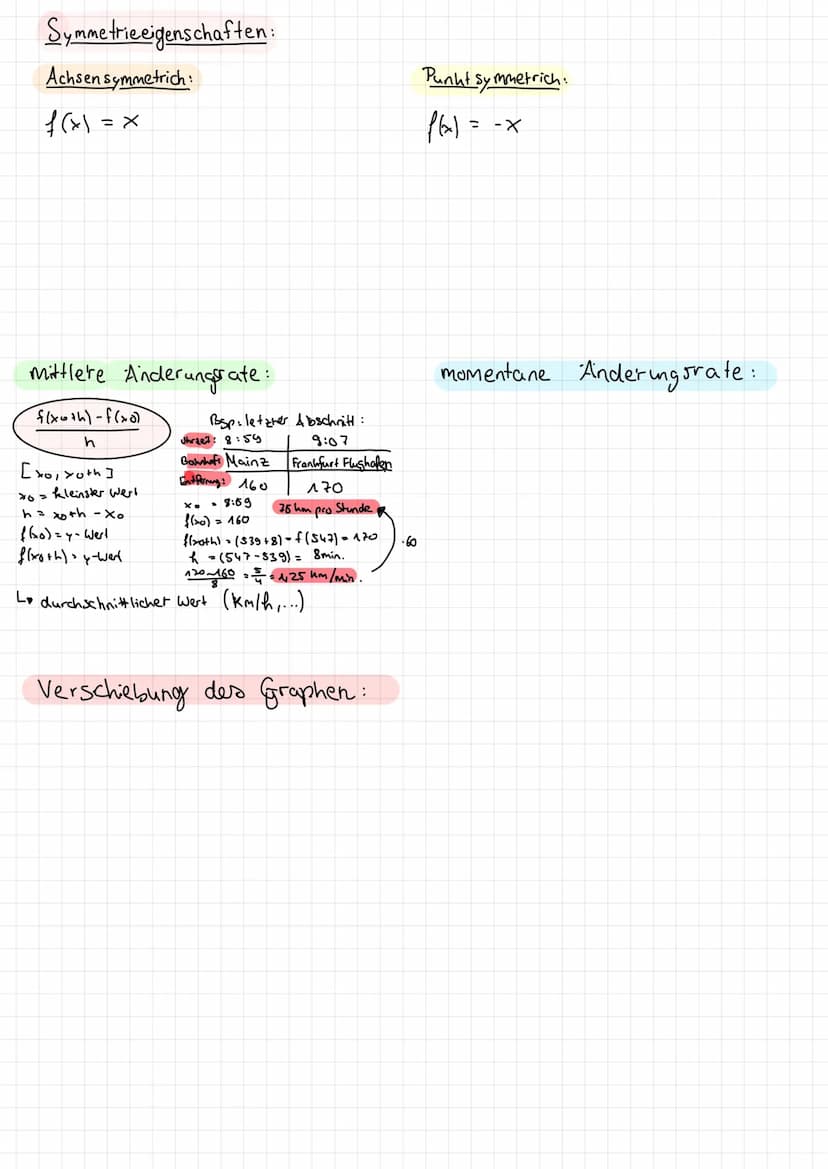 Symmetrieeigenschaften:
Achsensymmetrich:
f(x) = x
Punktsymmetrich:
f(x) = -x
mittlere Änderungsrate:
f(x0+h) - f(x0)
h
[x0, x0+h]
x0 = kleinster Wert
h = x0+h - x0
f(x0) = y-Wert
f(x0+h) = y-Wert
Bsp: letzter Abschnitt:
Uhrzeit: 8:59 9:07
Bahnhof: Mainz Frankfurt Flughafen
Entfernung: 160 170
x0 = 8:59
75 km pro Stunde
f(x0) = 160
f(x0+h) = (539+8) = f(547) = 170
·60
h = (547-539) = 8min.
170-160
8
= 5/4 = 1,25 km/min.
↳ durchschnittlicher Wert (km/h,...)
momentane Änderungsrate:
Verschiebung des Graphen: